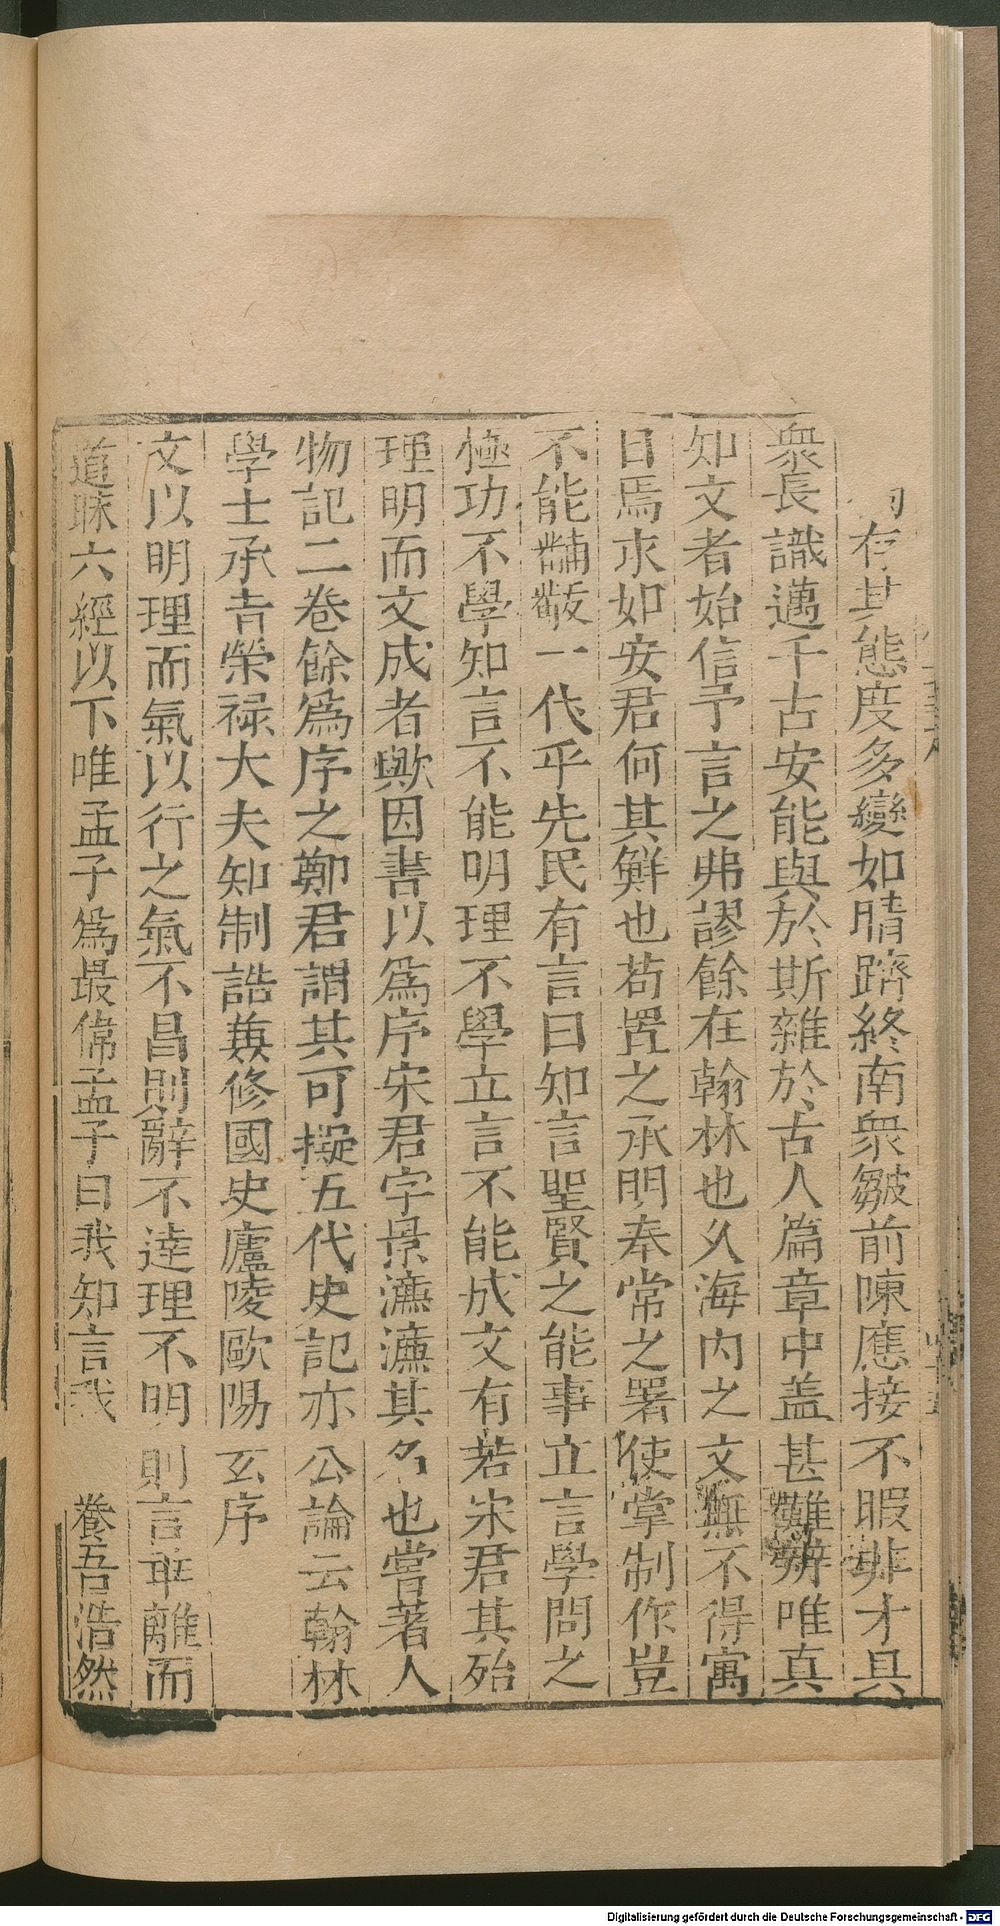 有其態度多變如晴躋終南衆皺前陳應接不暇非才具
衆長識邁千古安能與於斯雜於古人篇章中盖甚難辨唯真
知文者始信予言之弗謬餘在翰林也久海内之文無不得寓
目焉求如安君何其鮮也苟置之承明奉常之署使掌制作豈
不能黼黻一代乎先民有言曰知言聖賢之能事立言學問之
極功不學知言不能明理不學立言不能成文有若宋君其殆
理明而文成者歟因書以爲序宋君字景濂濂其名也嘗著人
物記二卷餘爲序之鄭君謂其可擬五代史記亦公論云翰林
學士承旨榮禄大夫知制誥兼修國史廬陵歐陽玄序
文以明理而氣以行之氣不昌則辭不達理不明則言乖離而
道昧六經以下唯孟子爲最偉孟子曰我知言我養吾浩然
Digitalisierung gefördert durch die Deutsche Forschungsgemeinschaft - DFG